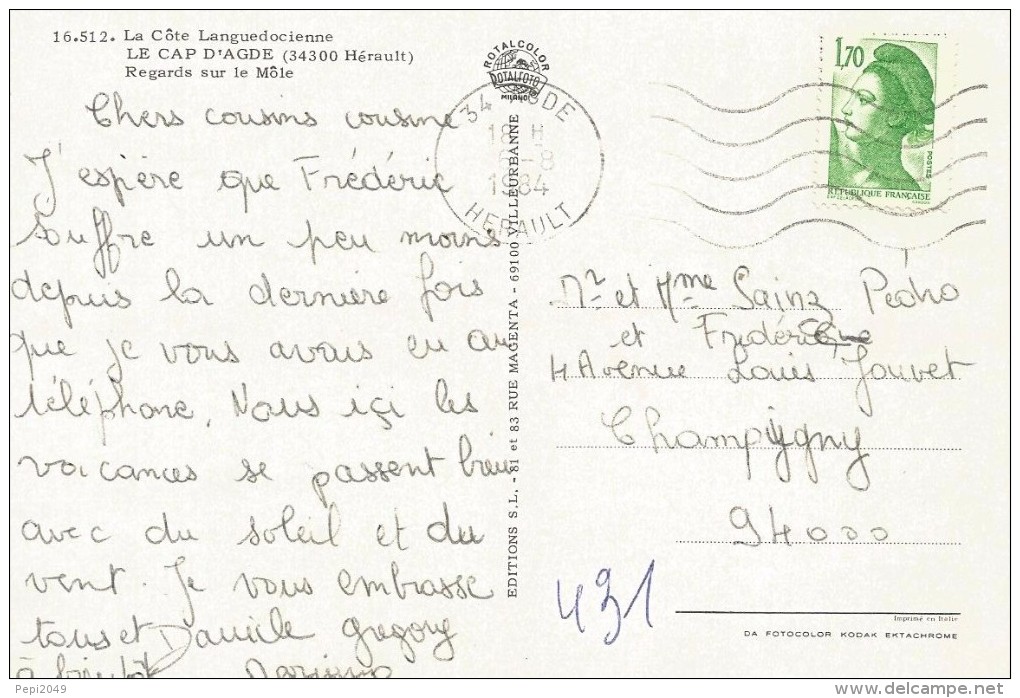 16.512. La Côte Languedocienne
LE CAP D'AGDE (34300 Hérault)
Regards sur le Môle
Chers cousins cousine
J'espère que Frédéric
souffre un peu moins
depuis la dernière fois
que je vous avais eu au
téléphone. Nous içi les
vacances se passent bien
avec du soleil et du
vent. Je vous embrasse
tous et Danièle gregory
à bientôt
ROTALCOLOR
ROTALFOTO
MILANO
34 AGDE
18 H
-8
1984
HERAULT
EDITIONS S.L. - 81 et 83 RUE MAGENTA - 69100 VILLEURBANNE
1,70
POSTES
RÉPUBLIQUE FRANÇAISE
Mr et Mme Sainz Pedro
et Frédéric
4 Avenue Louis Jouvet
Champigny
94000
431
Imprimé en Italie
DA FOTOCOLOR KODAK EKTACHROME
Pepi2049
delcampe.net